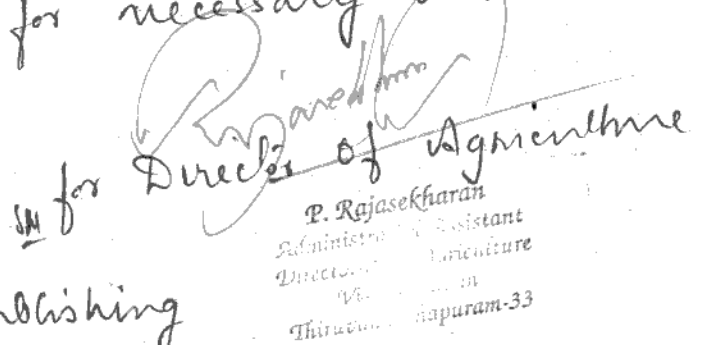 for necessary
Rajasekharan
SM for Director of Agriculture
P. Rajasekharan
Administra Assistant
Direct riculture
Vi n
Thiru apuram-33
blishing